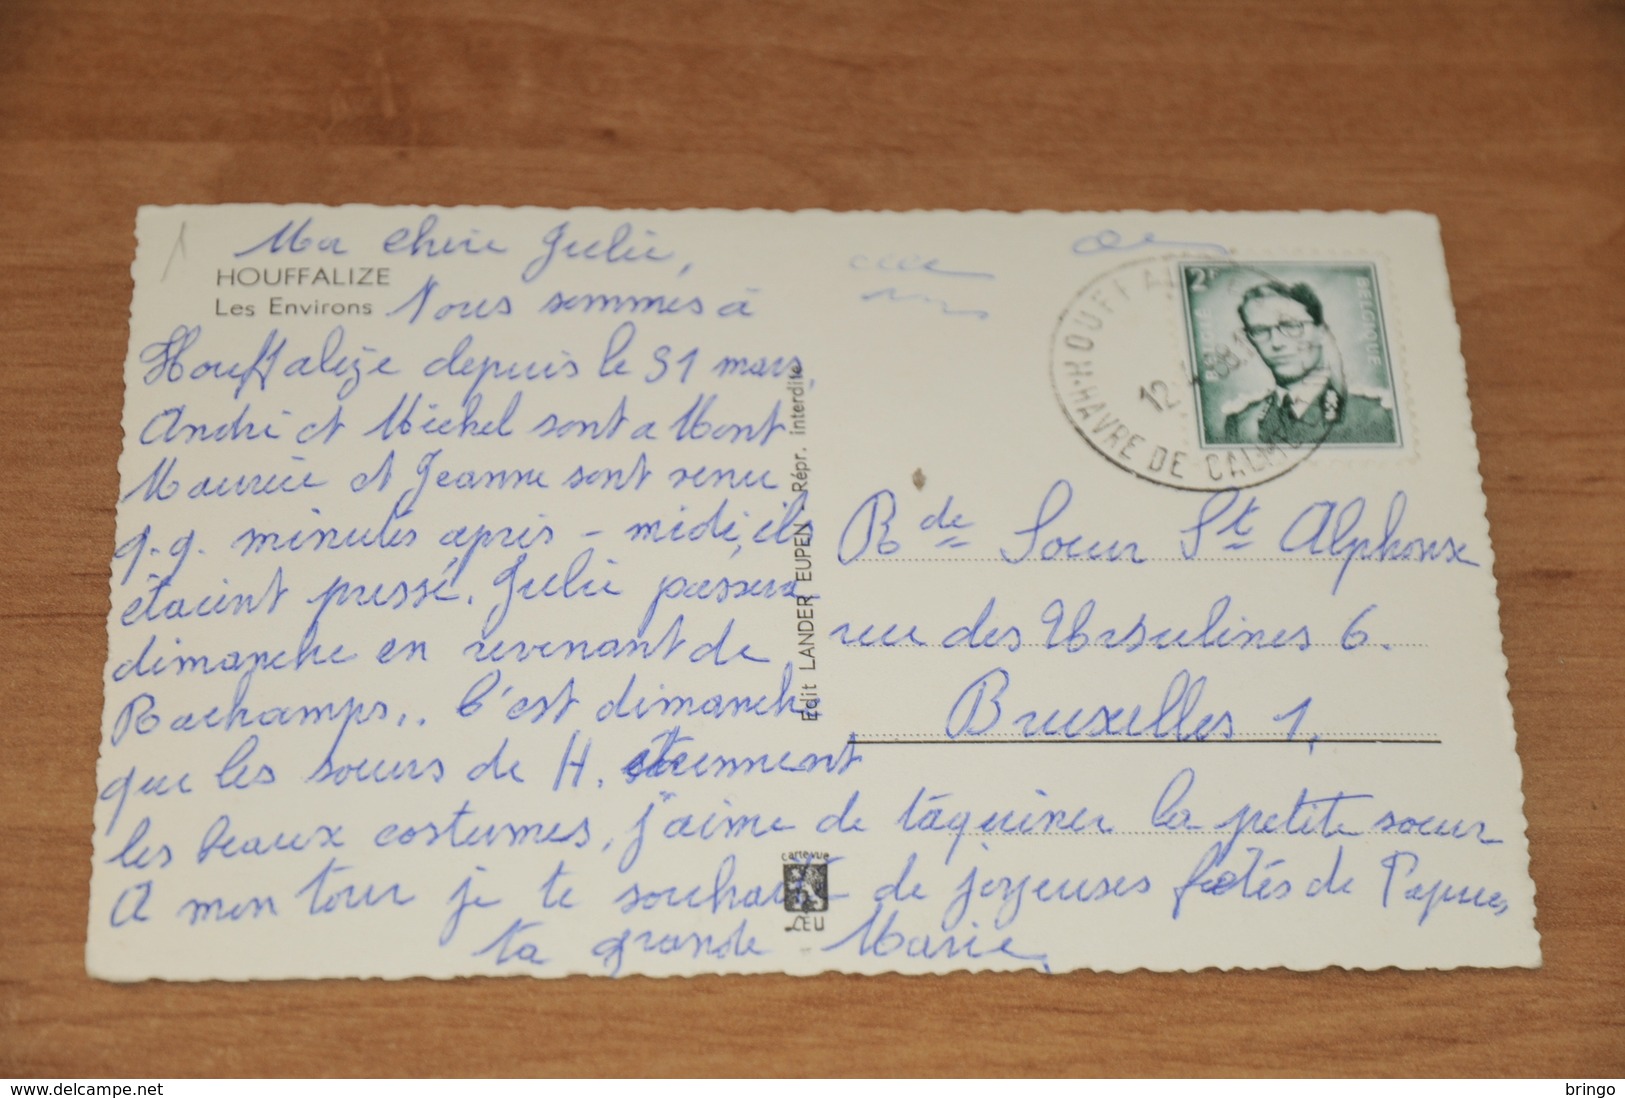 Ma chère Julie,
HOUFFALIZE
Les Environs
Nous sommes à
Houffalize depuis le 31 mars,
André et Michel sont a Mont
Maurice et Jeanne sont venu
q.q. minutes après-midi, ils
étaient pressé. Julie passera
dimanche en revenant de
Rachamps.. C'est dimanche
que les soeurs de H. étrennent
les beaux costumes, j'aime de taquiner la petite soeur
A mon tour je te souhaite de joyeuses fêtes de Paques
ta grande Marie.
Edit LANDER EUPEN - Répr. interdite
cartevue
LEU
HOUFFALIZE
12
HAVRE DE CALME
2F
BELGIQUE
Rde Soeur St Alphonse
rue des Ursulines 6.
Bruxelles 1.
www.delcampe.net
bringo